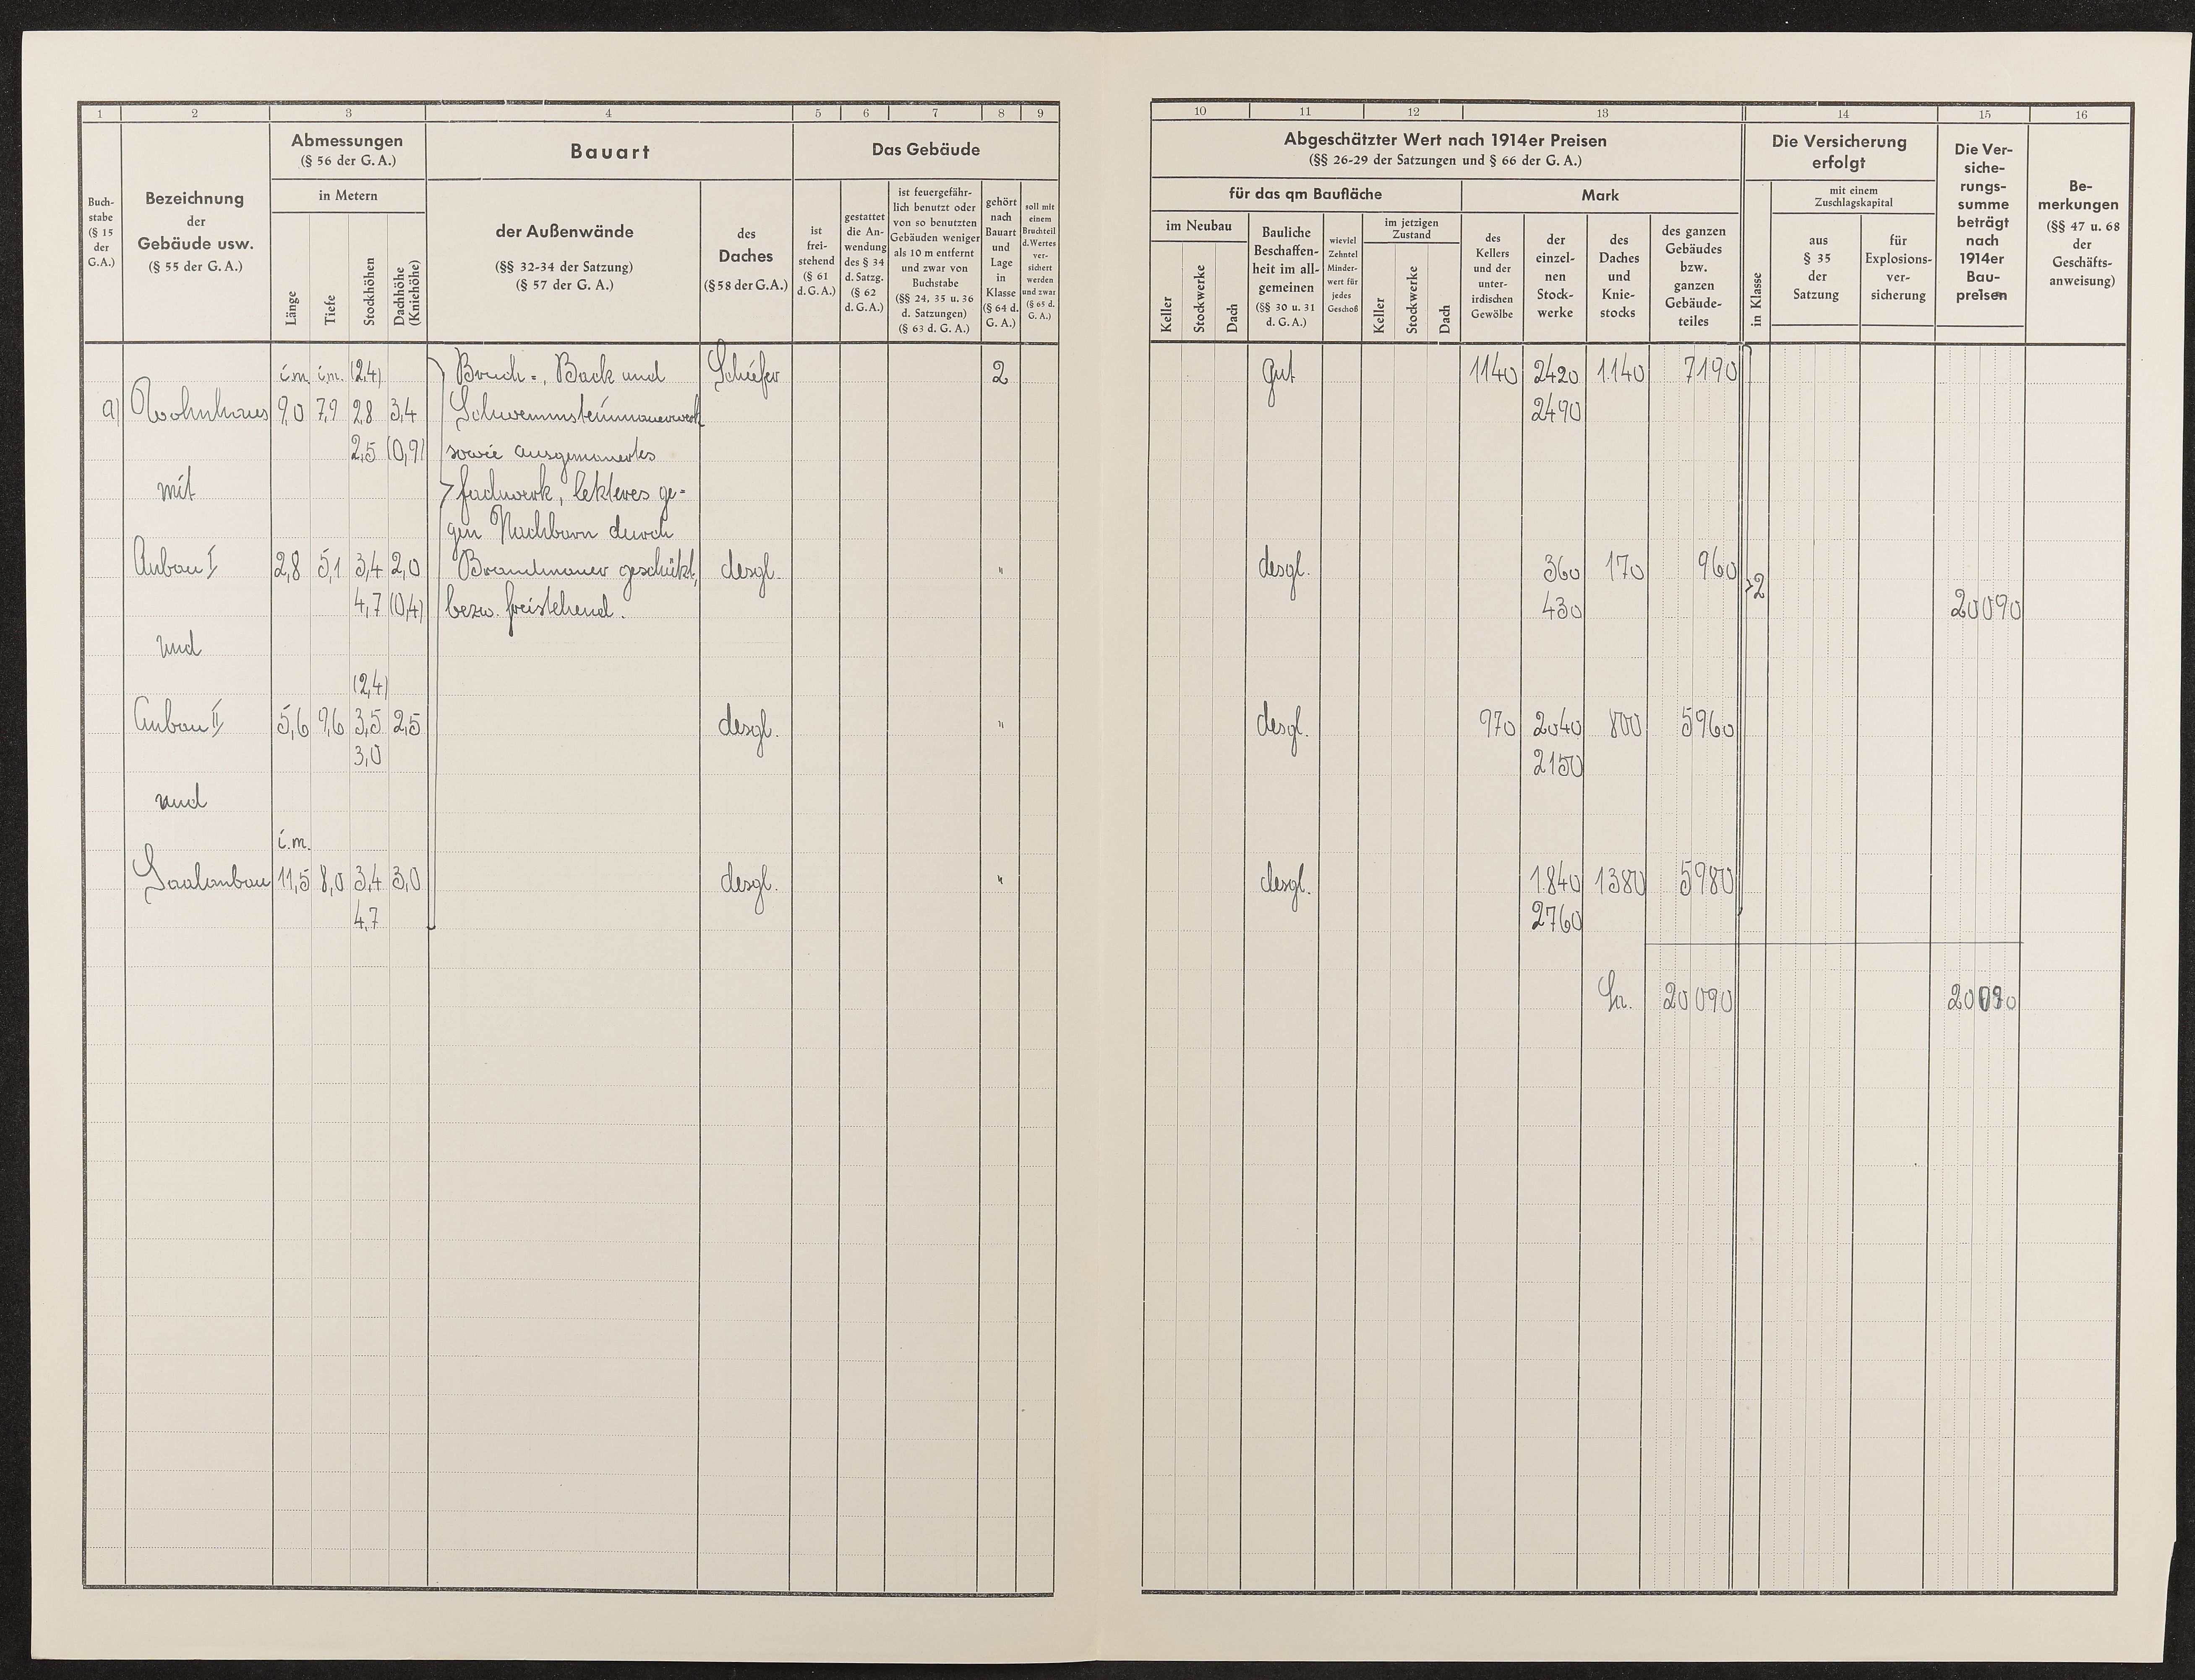 1 2 3 4 5 6 7 8 9
Buch-
stabe
(§ 15
der
G.A.)
Bezeichnung
der
Gebäude usw.
(§ 55 der G. A.)
Abmessungen
(§ 56 der G. A.)
in Metern
Länge
Tiefe
Stockhöhen
Dachhöhe
(Kniehöhe)
Bauart
der Außenwände
(§§ 32-34 der Satzung)
(§ 57 der G. A.)
des
Daches
(§ 58 der G.A.)
Das Gebäude
ist
frei-
stehend
(§ 61
d. G. A.)
gestattet
die An-
wendung
des § 34
d. Satzg.
(§ 62
d. G. A.)
ist feuergefähr-
lich benutzt oder
von so benutzten
Gebäuden weniger
als 10 m entfernt
und zwar von
Buchstabe
(§§ 24, 35 u. 36
d. Satzungen)
(§ 63 d. G. A.)
gehört
nach
Bauart
und
Lage
in
Klasse
(§ 64 d.
G. A.)
soll mit
einem
Bruchteil
d. Wertes
ver-
sichert
werden
und zwar
(§ 65 d.
G. A.)
i.m. i.m. (2,4) Bruch-, Back und Schiefer 2
a) Wohnhaus 9,0 7,9 2,8 3,4 Schwemmsteinmauerwerk
2,5 (0,9) sowie ausgemauertes
mit Fachwerk, letzteres ge-
gen Nachbarn durch
Anbau I 2,8 5,1 3,4 2,0 Brandmauer geschützt, desgl. "
4,7 (0,4) bezw. freistehend.
und
(2,4)
Anbau II 5,6 9,6 3,5 2,5 desgl. "
3,0
und
i.m.
Saalanbau 11,5 8,0 3,4 3,0 desgl. "
4,7
10 11 12 13 14 15 16
Abgeschätzter Wert nach 1914er Preisen
(§§ 26-29 der Satzungen und § 66 der G. A.)
für das qm Baufläche
im Neubau
Keller
Stockwerke
Dach
Bauliche
Beschaffen-
heit im all-
gemeinen
(§§ 30 u. 31
d. G. A.)
wieviel
Zehntel
Minder-
wert für
jedes
Geschoß
im jetzigen
Zustand
Keller
Stockwerke
Dach
Mark
des
Kellers
und der
unter-
irdischen
Gewölbe
der
einzel-
nen
Stock-
werke
des
Daches
und
Knie-
stocks
des ganzen
Gebäudes
bzw.
ganzen
Gebäude-
teiles
Die Versicherung
erfolgt
in Klasse
mit einem
Zuschlagskapital
aus
§ 35
der
Satzung
für
Explosions-
ver-
sicherung
Die Ver-
siche-
rungs-
summe
beträgt
nach
1914er
Bau-
preisen
Be-
merkungen
(§§ 47 u. 68
der
Geschäfts-
anweisung)
gut 1140 2420 1140 7190
2490
desgl. 360 170 960 2
430 20090
desgl. 970 2040 800 5960
2150
desgl. 1840 1380 5980
2760
Sa. 20090 20090